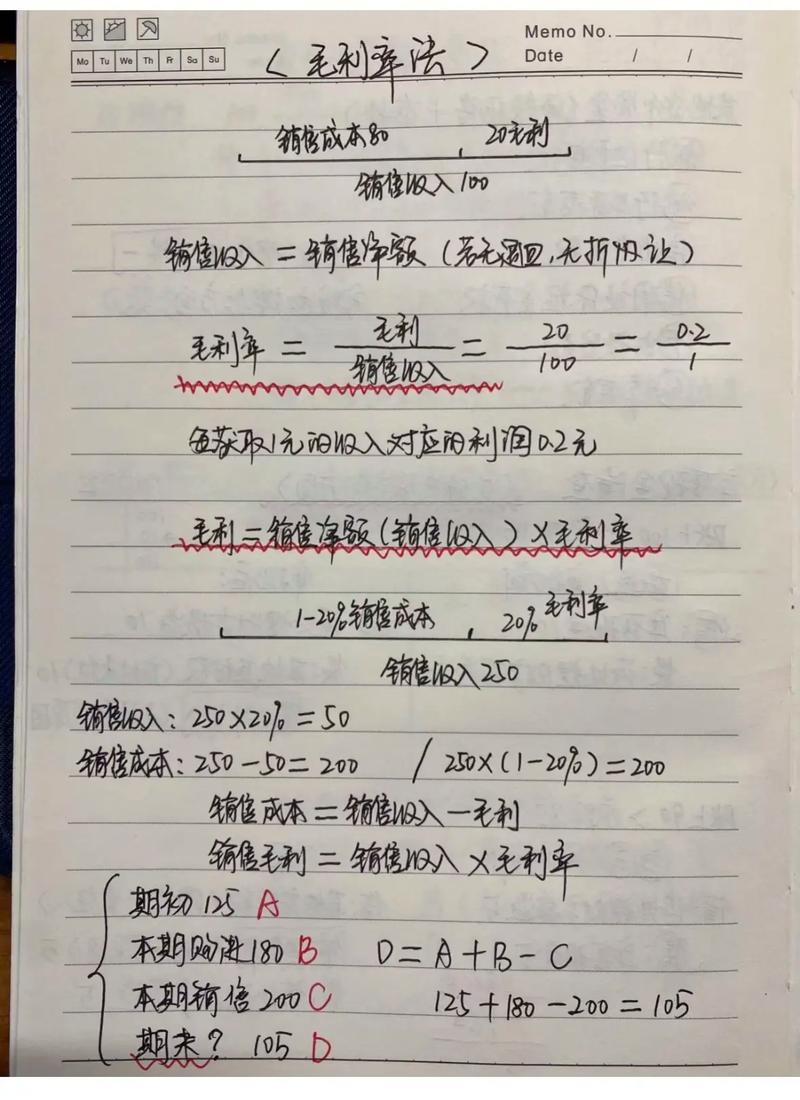 Memo No.
Mo Tu We Th Fr Sa Su
Date / /
〈毛利率法〉
销售成本80 20毛利
销售收入100
销售收入 = 销售净额 (若无退回,无折收让)
毛利率 = 毛利/销售收入 = 20/100 = 0.2/1
每获取1元的收入对应的利润0.2元
毛利=销售净额(销售收入)×毛利率
1-20%销售成本 20%毛利率
销售收入250
销售收入:250×20%=50
销售成本:250-50=200 / 250×(1-20%)=200
销售成本=销售收入-毛利
销售毛利=销售收入×毛利率
期初125 A
本期购进180 B D=A+B-C
本期销售200 C 125+180-200=105
期末? 105 D